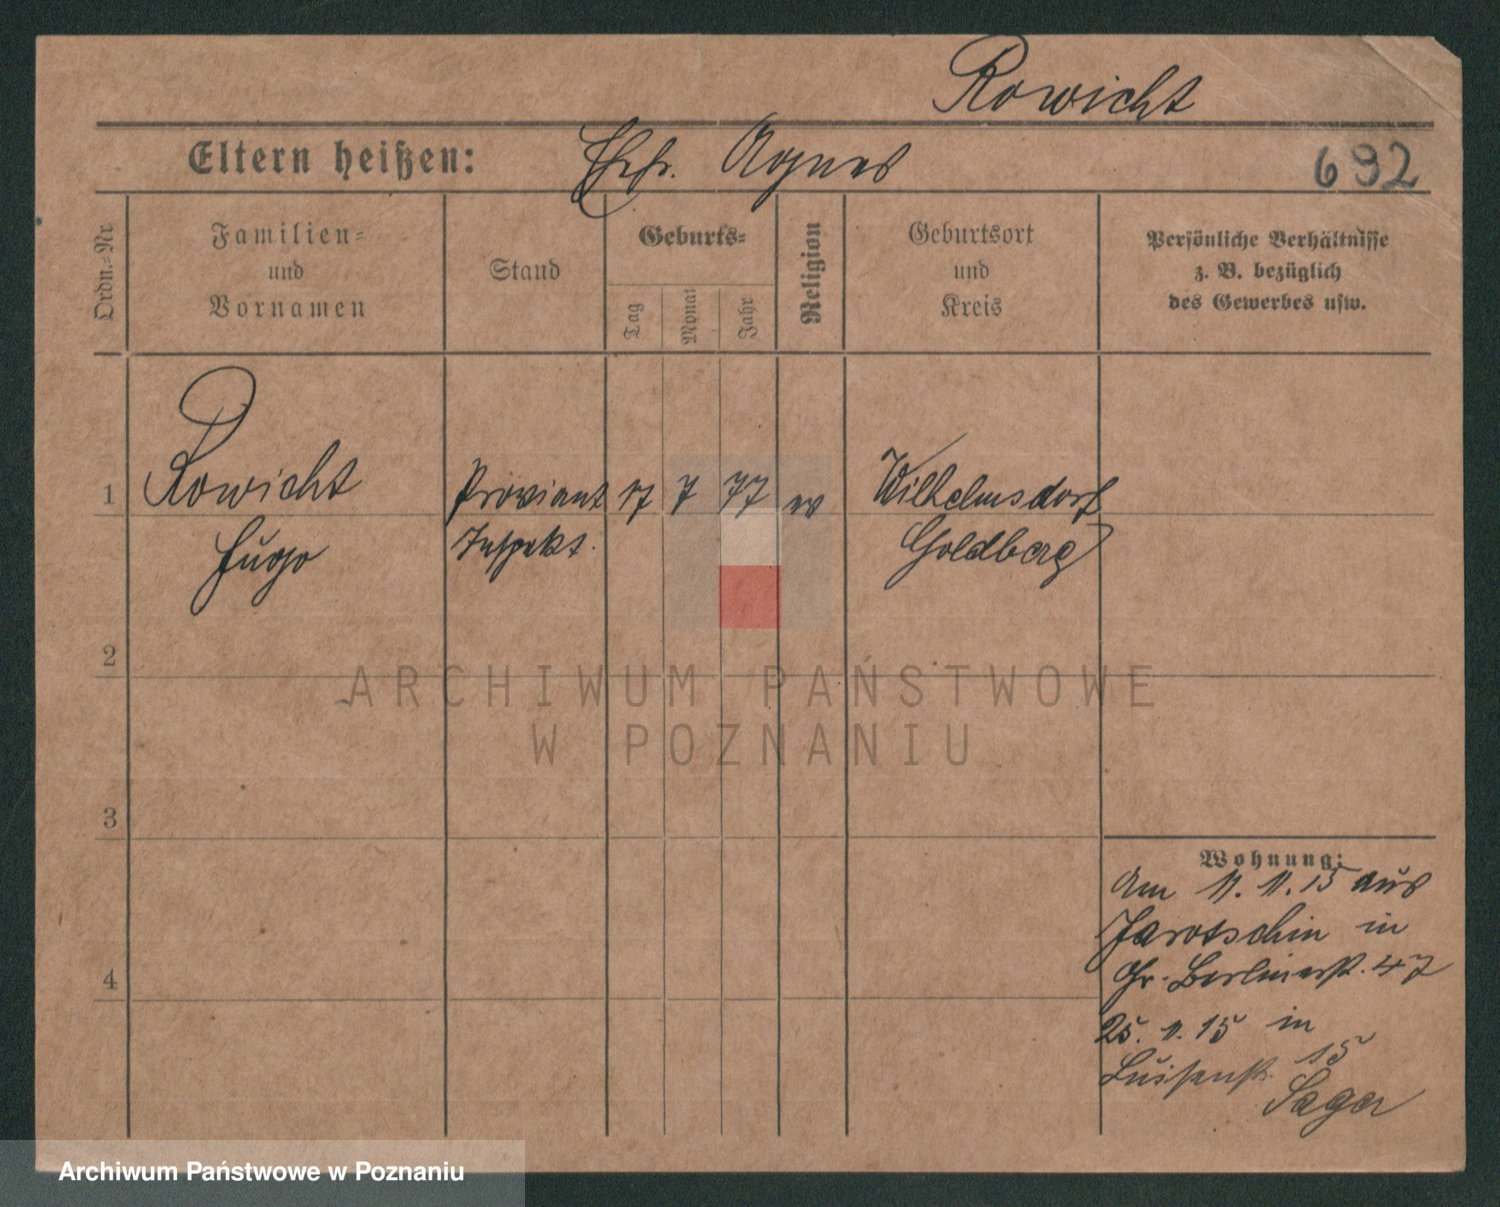 Rowicht
Eltern heißen: Agnes 692
Ordn.-Nr.
Familien-
und
Vornamen
Stand
Geburts-
Tag
Monat
Jahr
Religion
Geburtsort
und
Kreis
Persönliche Verhältnisse
z. B. bezüglich
des Gewerbes usw.
1 Rowicht Proviant 17 7 77 ev Wilhelmsdorf
Hugo Inspekt. Goldberg
2
3
4
Wohnung:
Am 11.11.15 aus
Jarotschin in
Gr. Berlinerstr. 47
25.11.15 in
Luisenstr. 15
Sager
ARCHIWUM PAŃSTWOWE
W POZNANIU
Archiwum Państwowe w Poznaniu